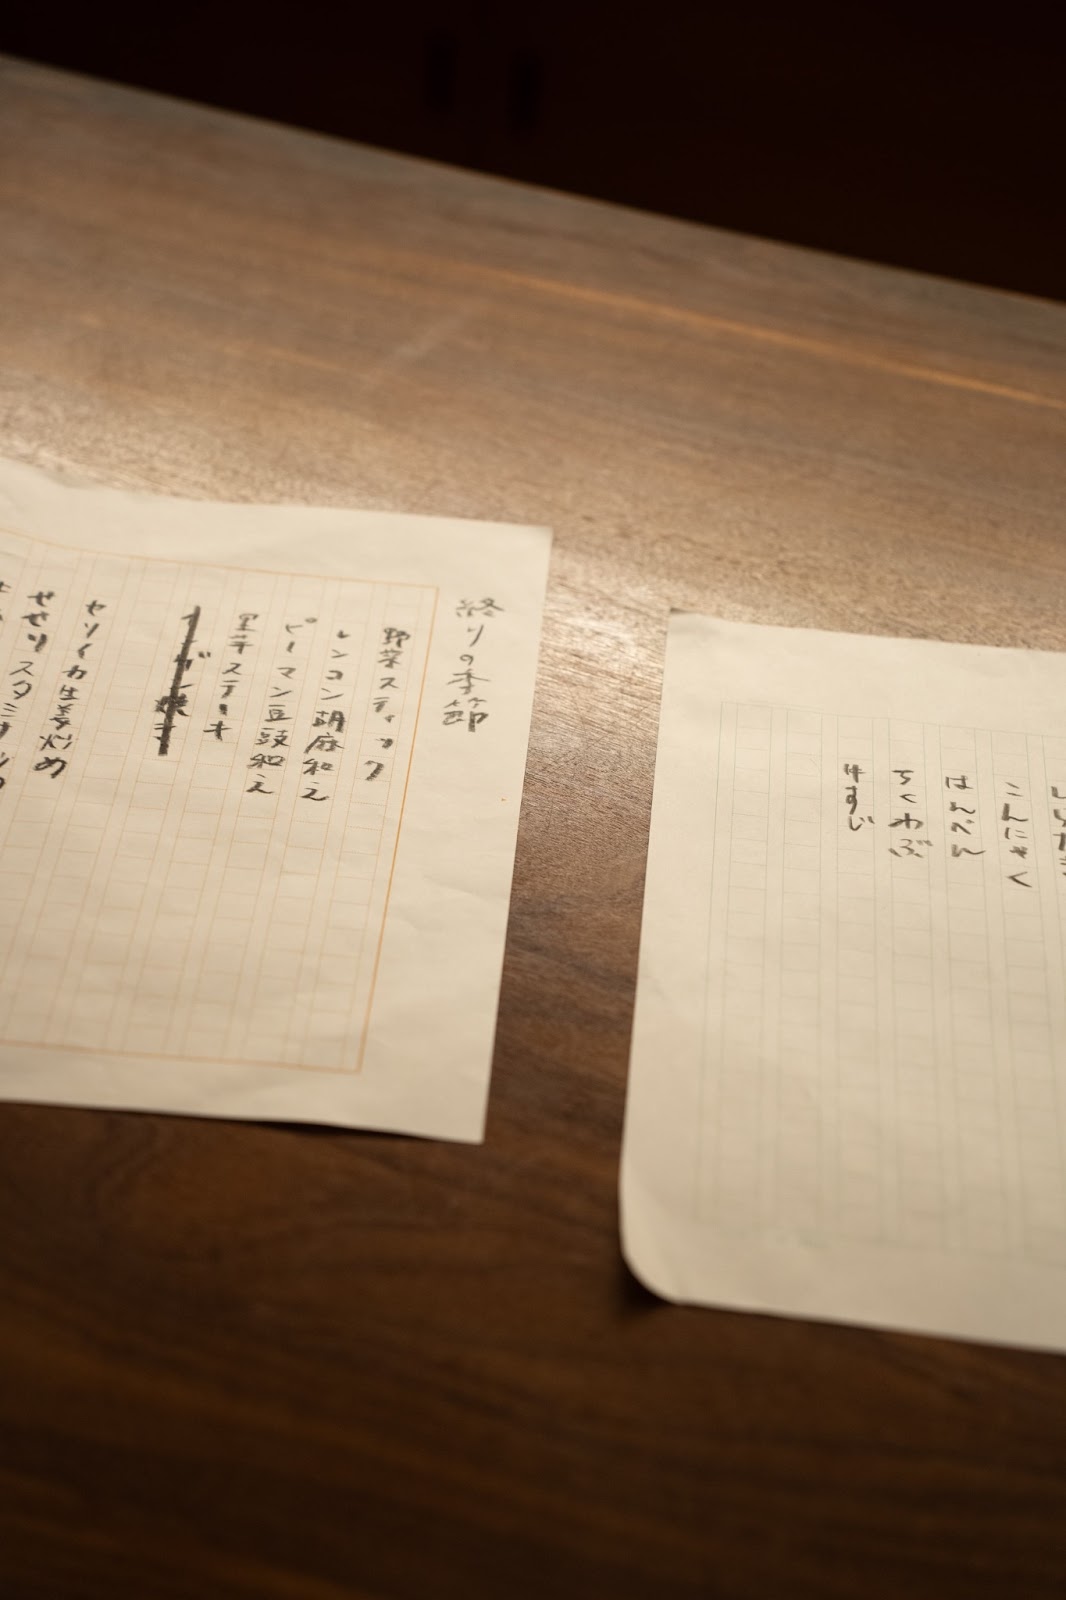 しらたき
こんにゃく
はんぺん
ちくわぶ
牛すじ
終りの季節
野菜スティック
レンコン胡麻和え
ピーマン豆豉和え
里芋ステーキ
ヤリイカ生姜炒め
せせりスタミナ